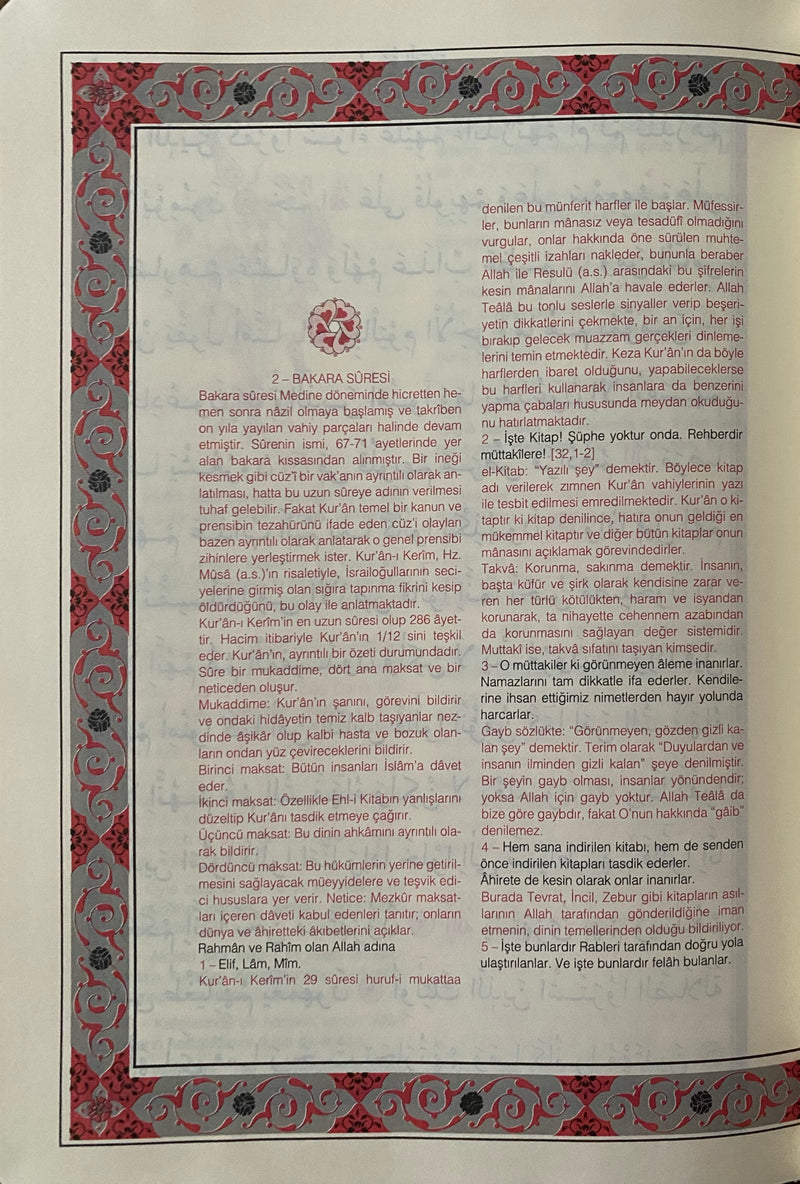 2 – BAKARA SÛRESİ
Bakara sûresi Medine döneminde hicretten he-
men sonra nâzil olmaya başlamış ve takrîben
on yıla yayılan vahiy parçaları halinde devam
etmiştir. Sûrenin ismi, 67-71 ayetlerinde yer
alan bakara kıssasından alınmıştır. Bir ineği
kesmek gibi cüz’î bir vak’anın ayrıntılı olarak an-
latılması, hatta bu uzun sûreye adının verilmesi
tuhaf gelebilir. Fakat Kur’ân temel bir kanun ve
prensibin tezahürünü ifade eden cüz’i olayları
bazen ayrıntılı olarak anlatarak o genel prensibi
zihinlere yerleştirmek ister. Kur’ân-ı Kerîm, Hz.
Mûsâ (a.s.)’ın risaletiyle, İsrailoğullarının seci-
yelerine girmiş olan sığıra tapınma fikrini kesip
öldürdüğünü, bu olay ile anlatmaktadır.
Kur’ân-ı Kerîm’in en uzun sûresi olup 286 âyet-
tir. Hacim itibariyle Kur’ân’ın 1/12 sini teşkil
eder. Kur’ân’ın, ayrıntılı bir özeti durumundadır.
Sûre bir mukaddime, dört ana maksat ve bir
neticeden oluşur.
Mukaddime: Kur’ân’ın şanını, görevini bildirir
ve ondaki hidâyetin temiz kalb taşıyanlar nez-
dinde âşikâr olup kalbi hasta ve bozuk olan-
ların ondan yüz çevireceklerini bildirir.
Birinci maksat: Bütün insanları İslâm’a dâvet
eder.
İkinci maksat: Özellikle Ehl-i Kitabın yanlışlarını
düzeltip Kur’ânı tasdik etmeye çağırır.
Üçüncü maksat: Bu dinin ahkâmını ayrıntılı ola-
rak bildirir.
Dördüncü maksat: Bu hükümlerin yerine getiril-
mesini sağlayacak müeyyidelere ve teşvik edi-
ci hususlara yer verir. Netice: Mezkûr maksat-
ları içeren dâveti kabul edenleri tanıtır; onların
dünya ve âhiretteki âkıbetlerini açıklar.
Rahmân ve Rahîm olan Allah adına
1 – Elif, Lâm, Mîm.
Kur’ân-ı Kerîm’in 29 sûresi huruf-i mukattaa
denilen bu münferit harfler ile başlar. Müfessir-
ler, bunların mânasız veya tesadüfî olmadığını
vurgular, onlar hakkında öne sürülen muhte-
mel çeşitli izahları nakleder, bununla beraber
Allah ile Resulü (a.s.) arasındaki bu şifrelerin
kesin mânalarını Allah’a havale ederler. Allah
Teâlâ bu tonlu seslerle sinyaller verip beşeri-
yetin dikkatlerini çekmekte, bir an için, her işi
bırakıp gelecek muazzam gerçekleri dinleme-
lerini temin etmektedir. Keza Kur’ân’ın da böyle
harflerden ibaret olduğunu, yapabileceklerse
bu harfleri kullanarak insanlara da benzerini
yapma çabaları hususunda meydan okuduğu-
nu hatırlatmaktadır.
2 – İşte Kitap! Şüphe yoktur onda. Rehberdir
müttakîlere! [32,1-2]
el-Kitab: “Yazılı şey” demektir. Böylece kitap
adı verilerek zımnen Kur’ân vahiylerinin yazı
ile tesbit edilmesi emredilmektedir. Kur’ân o ki-
taptır ki kitap denilince, hatıra onun geldiği en
mükemmel kitaptır ve diğer bütün kitaplar onun
mânasını açıklamak görevindedirler.
Takvâ: Korunma, sakınma demektir. İnsanın,
başta küfür ve şirk olarak kendisine zarar ve-
ren her türlü kötülükten, haram ve isyandan
korunarak, ta nihayette cehennem azabından
da korunmasını sağlayan değer sistemidir.
Muttakî ise, takvâ sıfatını taşıyan kimsedir.
3 – O müttakiler ki görünmeyen âleme inanırlar.
Namazlarını tam dikkatle ifa ederler. Kendile-
rine ihsan ettiğimiz nimetlerden hayır yolunda
harcarlar.
Gayb sözlükte: “Görünmeyen, gözden gizli ka-
lan şey” demektir. Terim olarak “Duyulardan ve
insanın ilminden gizli kalan” şeye denilmiştir.
Bir şeyin gayb olması, insanlar yönündendir;
yoksa Allah için gayb yoktur. Allah Teâlâ da
bize göre gaybdır, fakat O’nun hakkında “gâib”
denilemez.
4 – Hem sana indirilen kitabı, hem de senden
önce indirilen kitapları tasdik ederler.
Âhirete de kesin olarak onlar inanırlar.
Burada Tevrat, İncil, Zebur gibi kitapların asıl-
larının Allah tarafından gönderildiğine iman
etmenin, dinin temellerinden olduğu bildiriliyor.
5 – İşte bunlardır Rableri tarafından doğru yola
ulaştırılanlar. Ve işte bunlardır felâh bulanlar.